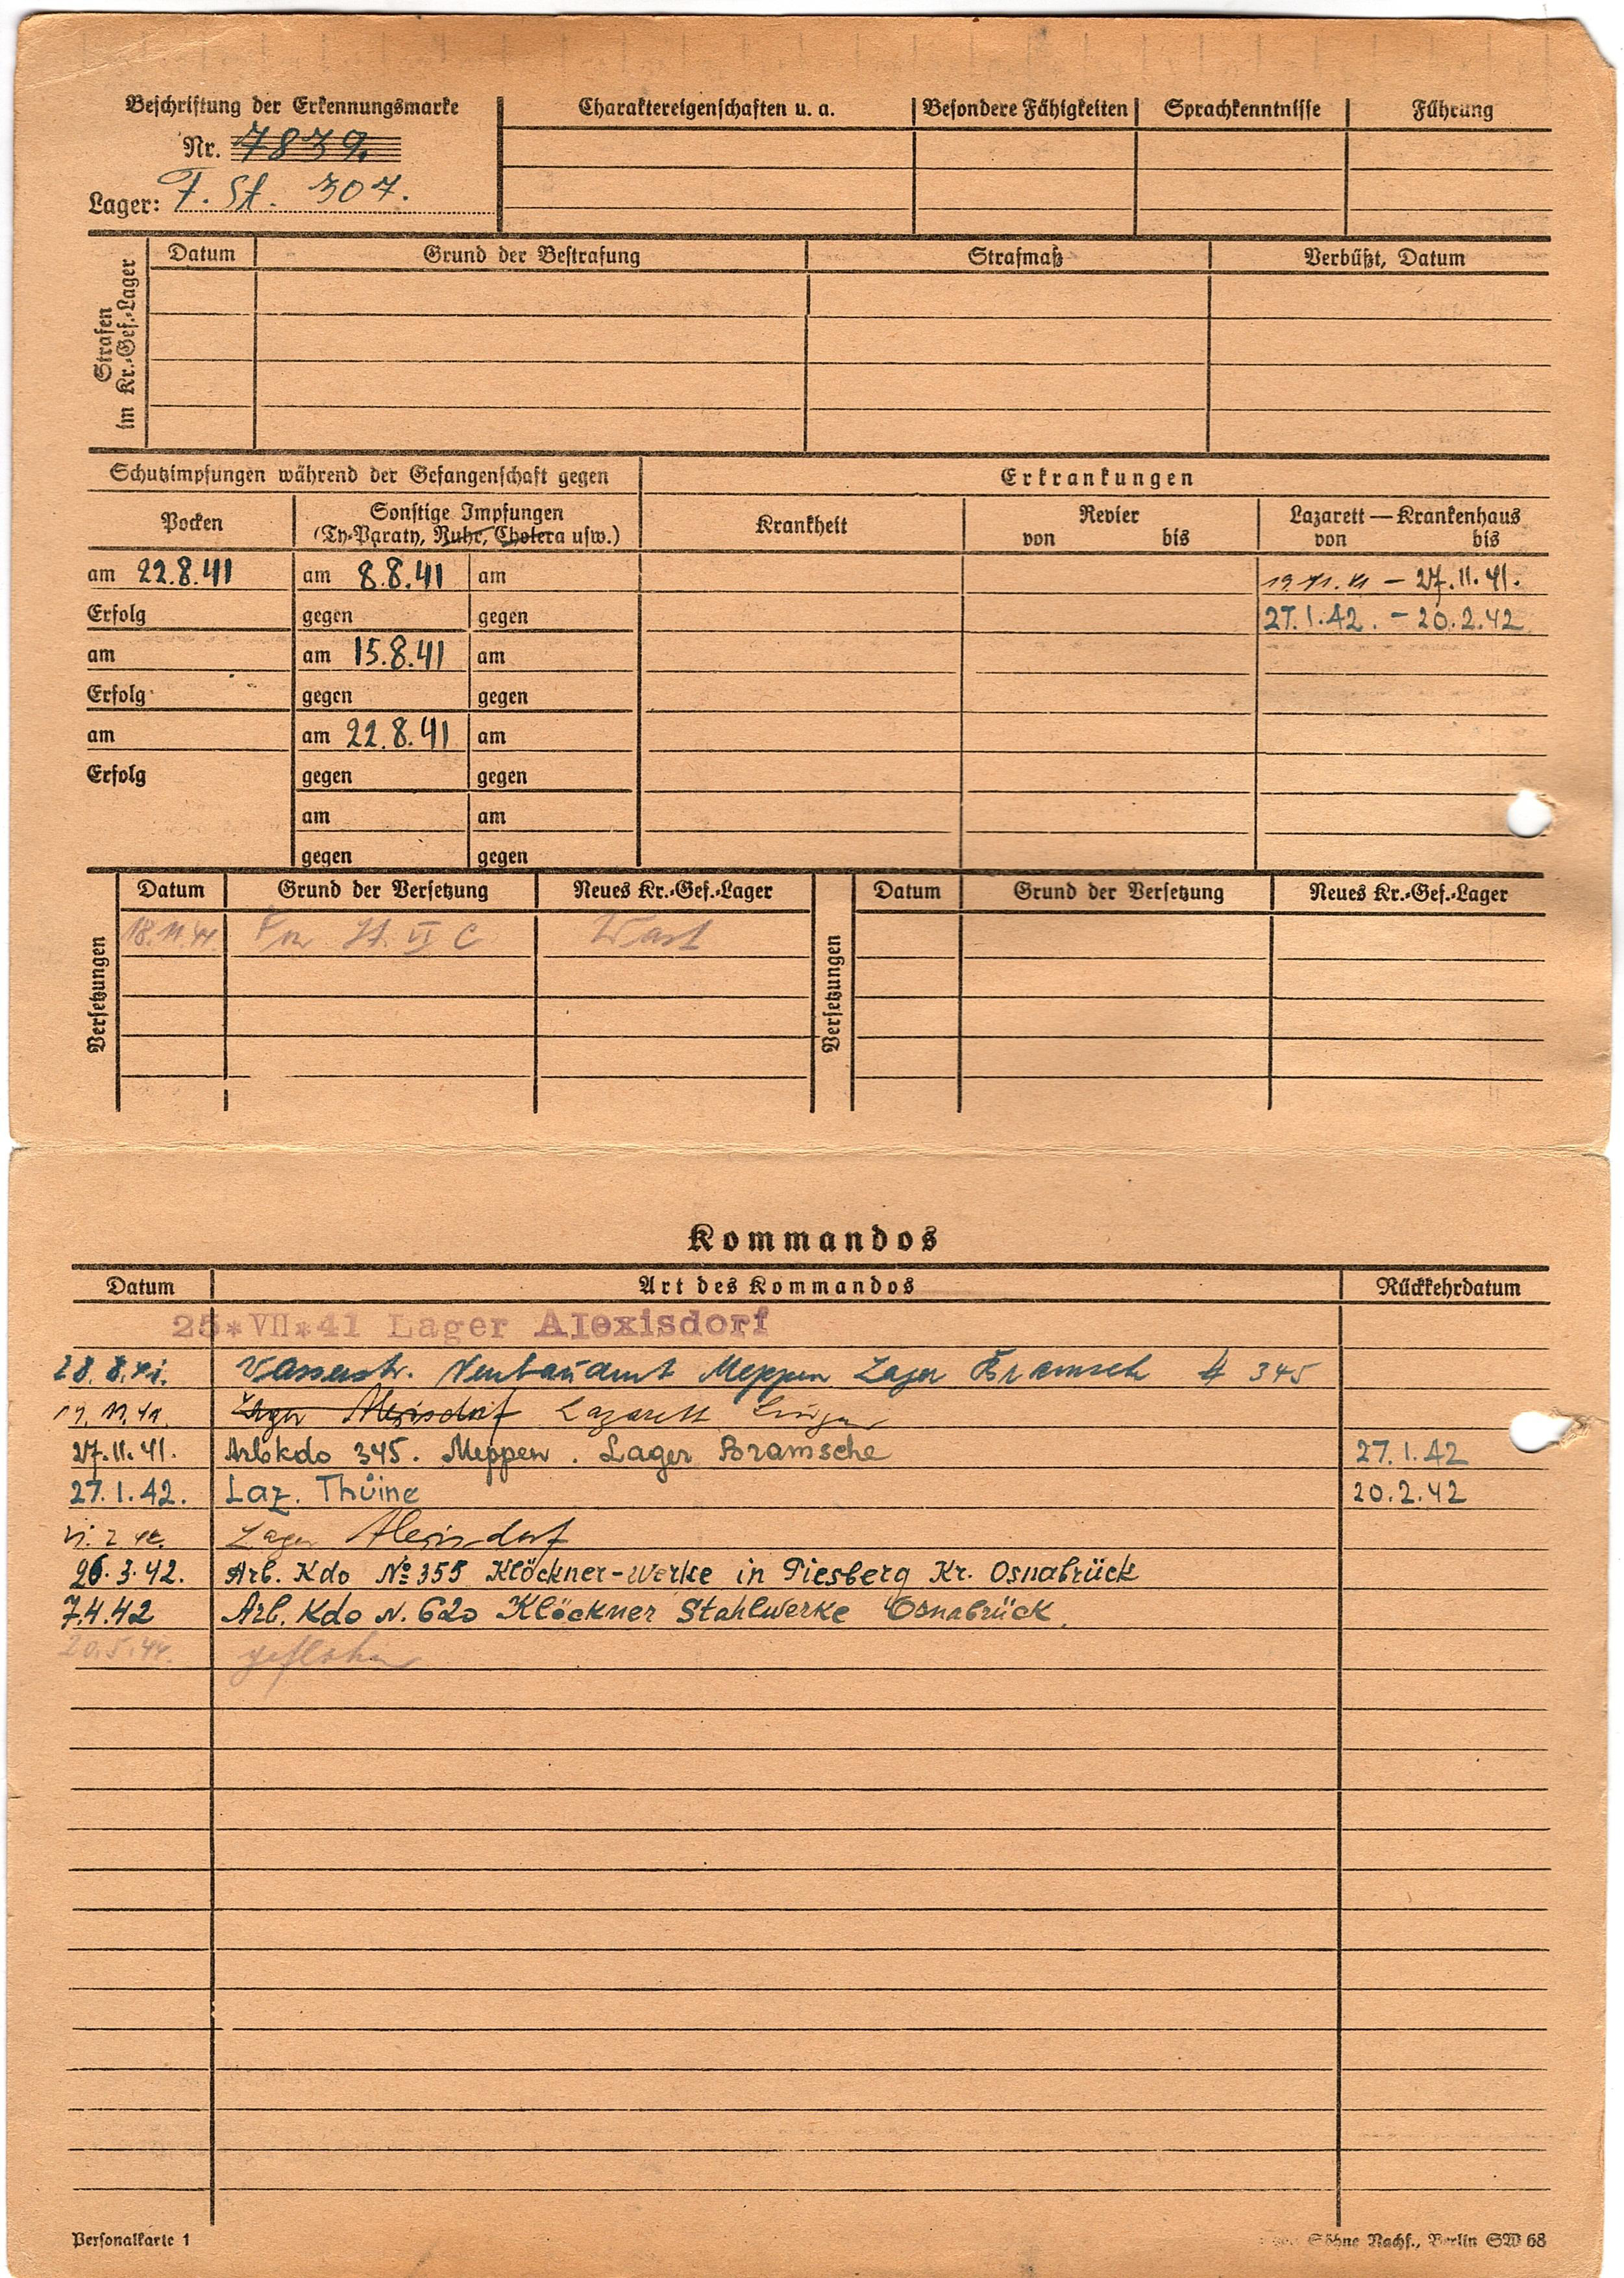 Beschriftung der Erkennungsmarke
Nr. 7839.
Lager: F. St. 307.
Charaktereigenschaften u. a. Besondere Fähigkeiten Sprachkenntnisse Führung
Strafen im Kr.-Gef.-Lager
Datum Grund der Bestrafung Strafmaß Verbüßt, Datum
Schutzimpfungen während der Gefangenschaft gegen
Erkrankungen
Pocken
Sonstige Impfungen
(Ty-Paraty, Ruhr, Cholera usw.)
Krankheit
Revier
von bis
Lazarett—Krankenhaus
von bis
am 22.8.41 am 8.8.41 am 19.11.41 – 27.11.41.
Erfolg gegen gegen 27.1.42. – 20.2.42
am am 15.8.41 am
Erfolg gegen gegen
am am 22.8.41 am
Erfolg gegen gegen
am am
gegen gegen
Versetzungen
Datum Grund der Versetzung Neues Kr.-Gef.-Lager
18.11.41 St. VI C
Versetzungen
Datum Grund der Versetzung Neues Kr.-Gef.-Lager
Kommandos
Datum Art des Kommandos Rückkehrdatum
25*VII*41 Lager Alexisdorf
28.8.41. Wasserstr. Neubauamt Meppen Lager Bramsch 345
19.11.41. Lager Alexisdorf Lazarett Lingen
27.11.41. Arbkdo 345. Meppen. Lager Bramsche 27.1.42
27.1.42. Laz. Thüine 20.2.42
Lager Alexisdorf
26.3.42. Arb. Kdo № 355 Klöckner-Werke in Piesberg Kr. Osnabrück
7.4.42 Arb. Kdo N. 620 Klöckner Stahlwerke Osnabrück.
20.5.44. geflohen
Personalkarte 1
Söhne Nachf., Berlin SW 68